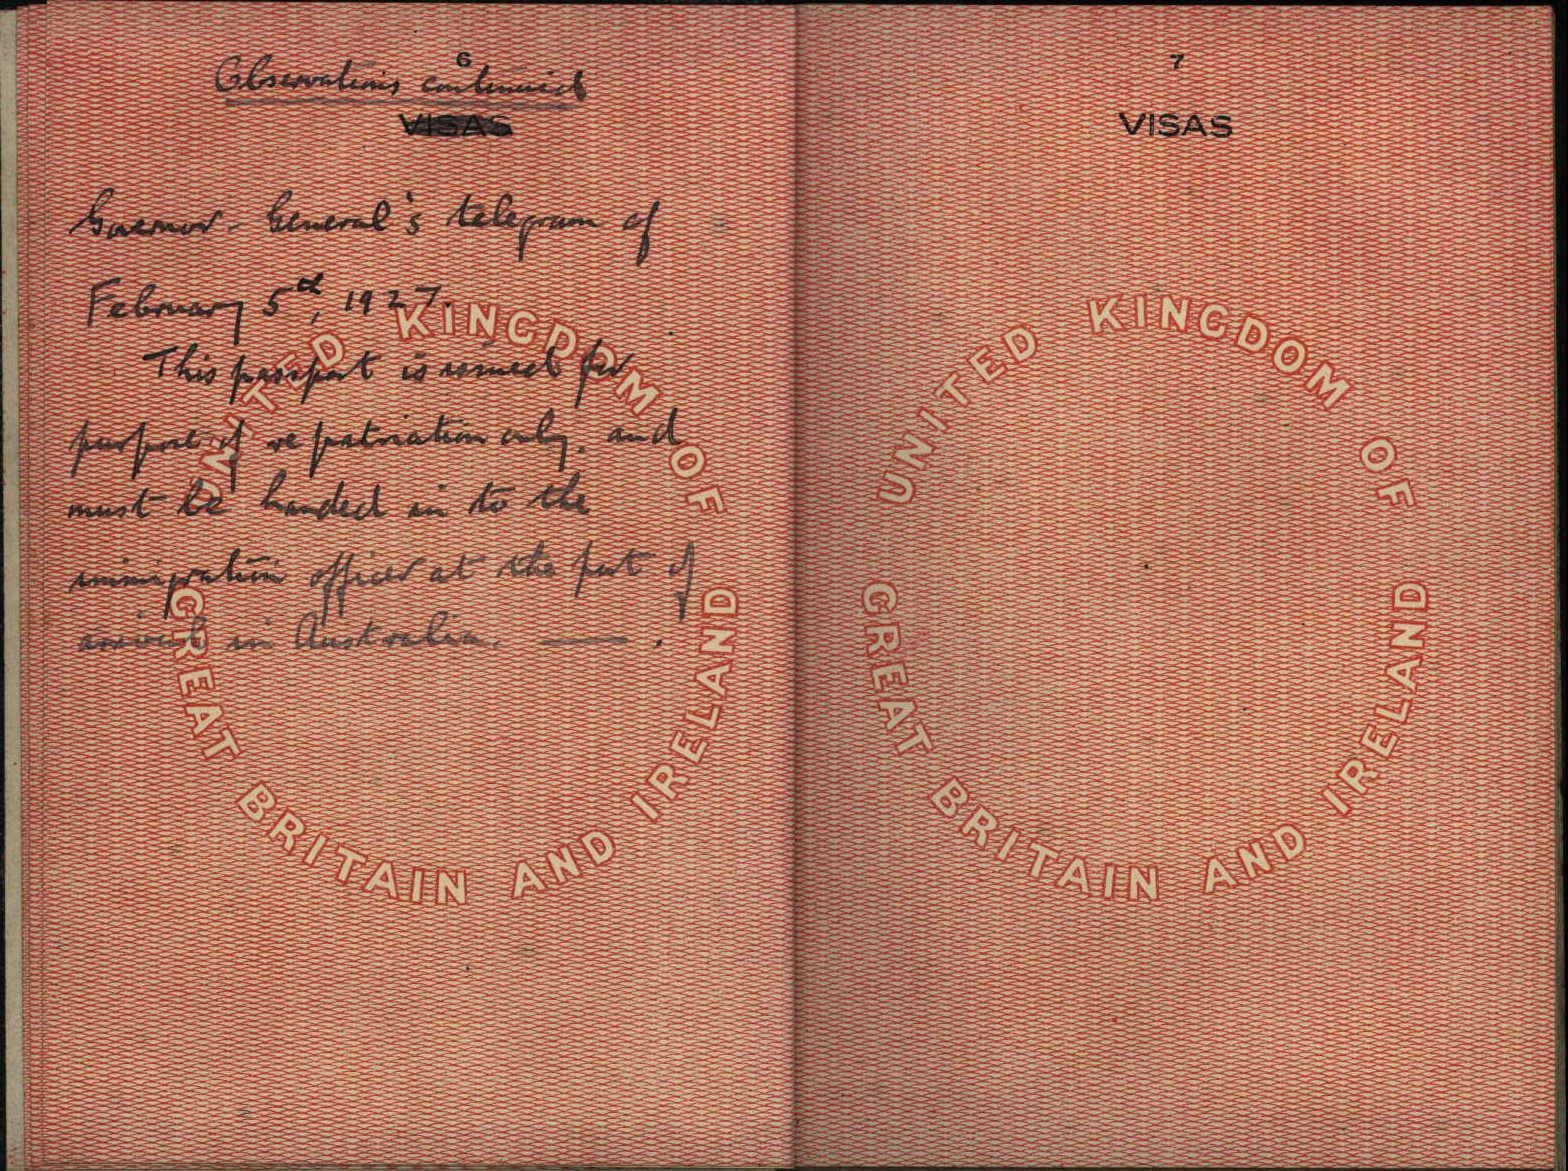 6
Observations continued
VISAS
Governor-General's telegram of
February 5d, 1927.
This passport is issued for
purpose of repatriation only, and
must be handed in to the
immigration officer at the port of
arrival in Australia. —— .
UNITED KINGDOM OF
GREAT BRITAIN AND IRELAND
7
VISAS
UNITED KINGDOM OF
GREAT BRITAIN AND IRELAND